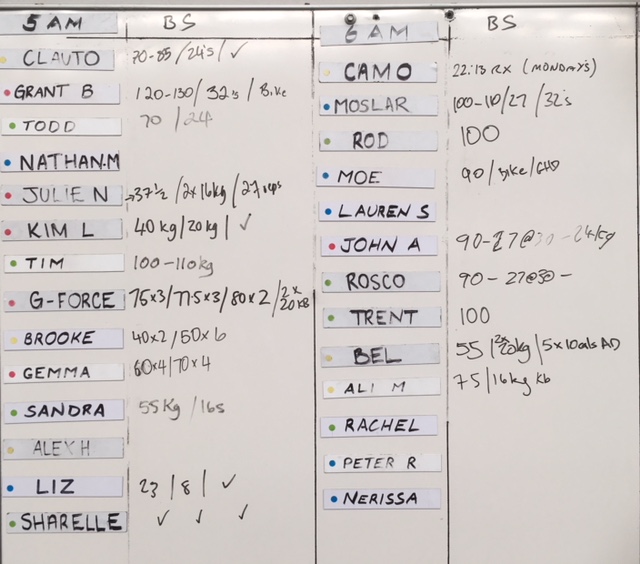 5 AM BS
CLAUTO 70-85/24's/✓
GRANT B 120-130/32's/Bike
TODD 70/24
NATHAN.M
JULIE N →37½/2x16kg/27 reps
KIM L 40 kg/20 kg/✓
TIM 100-110kg
G-FORCE 75x3/77.5x3/80x2/2x 20 KB
BROOKE 40x2/50x6
GEMMA 60x4/70x4
SANDRA 55 Kg/16s
ALEX H
LIZ 23/8/✓
SHARELLE ✓ ✓ ✓
6 AM BS
CAMO 22:13 RX (MONDAY'S)
MOSLAR 100-110/27/32's
ROD 100
MOE 90/Bike/GHD
LAUREN S
JOHN A 90-27@30-24/
ROSCO 90-27@30-
TRENT 100
BEL 55/2x20kg/5x10cals AD
ALI M 75/16kg kb
RACHEL
PETER R
NERISSA